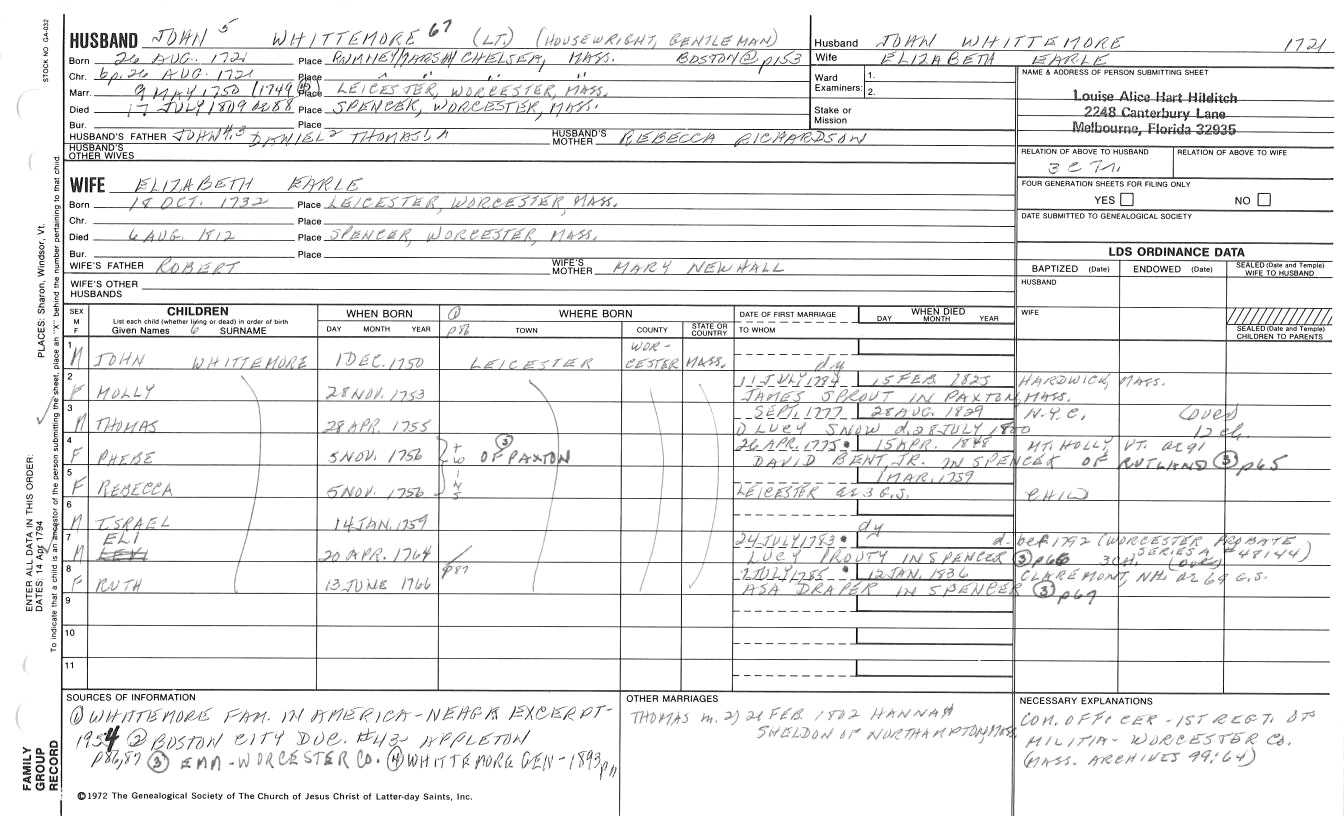 STOCK NO. GA-032
HUSBAND JOHN 5 WHITTEMORE 67 (LT.) (HOUSEWRIGHT, GENTLEMAN)
Born 26 AUG. 1721 Place RUMNEY/MARSH/CHELSEA, MASS. BOSTON ② p153
Chr. bp. 26 AUG. 1721 Place " " " "
Marr. 9 MAY 1750 (1749 ④) Place LEICESTER, WORCESTER, MASS.
Died 17 JULY 1809 ae 88 Place SPENCER, WORCESTER, MASS.
Bur. Place
HUSBAND'S FATHER JOHN 4,3 DANIEL 2 THOMAS HUSBAND'S MOTHER REBECCA RICHARDSON
HUSBAND'S OTHER WIVES
Husband JOHN WHITTEMORE 1721
Wife ELIZABETH EARLE
Ward Examiners: 1.
2.
Stake or Mission
NAME & ADDRESS OF PERSON SUBMITTING SHEET
Louise Alice Hart Hilditch
2248 Canterbury Lane
Melbourne, Florida 32935
RELATION OF ABOVE TO HUSBAND RELATION OF ABOVE TO WIFE
3 C 7r.
FOUR GENERATION SHEETS FOR FILING ONLY
YES NO
DATE SUBMITTED TO GENEALOGICAL SOCIETY
WIFE ELIZABETH EARLE
Born 18 OCT. 1732 Place LEICESTER, WORCESTER, MASS.
Chr. Place
Died 6 AUG. 1812 Place SPENCER, WORCESTER, MASS.
Bur. Place
WIFE'S FATHER ROBERT WIFE'S MOTHER MARY NEWHALL
WIFE'S OTHER HUSBANDS
LDS ORDINANCE DATA
BAPTIZED (Date) ENDOWED (Date) SEALED (Date and Temple) WIFE TO HUSBAND
HUSBAND
WIFE
SEALED (Date and Temple) CHILDREN TO PARENTS
SEX M F
CHILDREN
List each child (whether living or dead) in order of birth
Given Names 6 SURNAME
WHEN BORN
DAY MONTH YEAR
① p86
WHERE BORN
TOWN COUNTY STATE OR COUNTRY
DATE OF FIRST MARRIAGE
TO WHOM
WHEN DIED
DAY MONTH YEAR
1 M JOHN WHITTEMORE 1 DEC. 1750 LEICESTER WOR-CESTER MASS. dy
2 F MOLLY 28 NOV. 1753 11 JULY 1784 15 FEB. 1825 HARDWICK, MASS.
JAMES SPROUT IN PAXTON, MASS.
3 M THOMAS 28 APR. 1755 SEPT. 1777 28 AUG. 1829 N.Y.C. (over)
① LUCY SNOW d. 28 JULY 1800 12 ch.
4 F PHEBE 5 NOV. 1756 twins ③ OF PAXTON 26 APR. 1775 15 APR. 1848 MT. HOLLY VT. ae 91
DAVID BENT, JR. IN SPENCER OF RUTLAND ③ p65
5 F REBECCA 5 NOV. 1756 1 MAR. 1759
LEICESTER ae 3 G.S. CHILD
6 M ISRAEL 14 JAN. 1759 dy
7 M ELI 20 APR. 1764 24 JULY 1783 d. bef 1792 (WORCESTER PROBATE SERIES A #48144)
LUCY PROUTY IN SPENCER ③ p66 3 CH. (over)
8 F RUTH p87 13 JUNE 1766 2 JULY 1785 12 JAN. 1836 CLAREMONT, NH. ae 69 G.S.
ASA DRAPER IN SPENCER ③ p67
9
10
11
SOURCES OF INFORMATION
① WHITTEMORE FAM. IN AMERICA-NEHGR EXCERPT-
1954 ② BOSTON CITY DOC. #43- APPLETON
p86,87 ③ EMM-WORCESTER CO. ④ WHITTEMORE GEN-1893 p11
OTHER MARRIAGES
THOMAS m. 2) 21 FEB. 1802 HANNAH
SHELDON OF NORTHAMPTON, MASS.
NECESSARY EXPLANATIONS
COM. OFFICER - 1ST REGT. OF
MILITIA- WORCESTER CO.
(MASS. ARCHIVES 99:64)
©1972 The Genealogical Society of The Church of Jesus Christ of Latter-day Saints, Inc.
FAMILY GROUP RECORD
ENTER ALL DATA IN THIS ORDER:
DATES: 14 Apr 1794 PLACES: Sharon, Windsor, Vt.
To indicate that a child is an ancestor of the person submitting the sheet, place an "X" behind the number pertaining to that child.